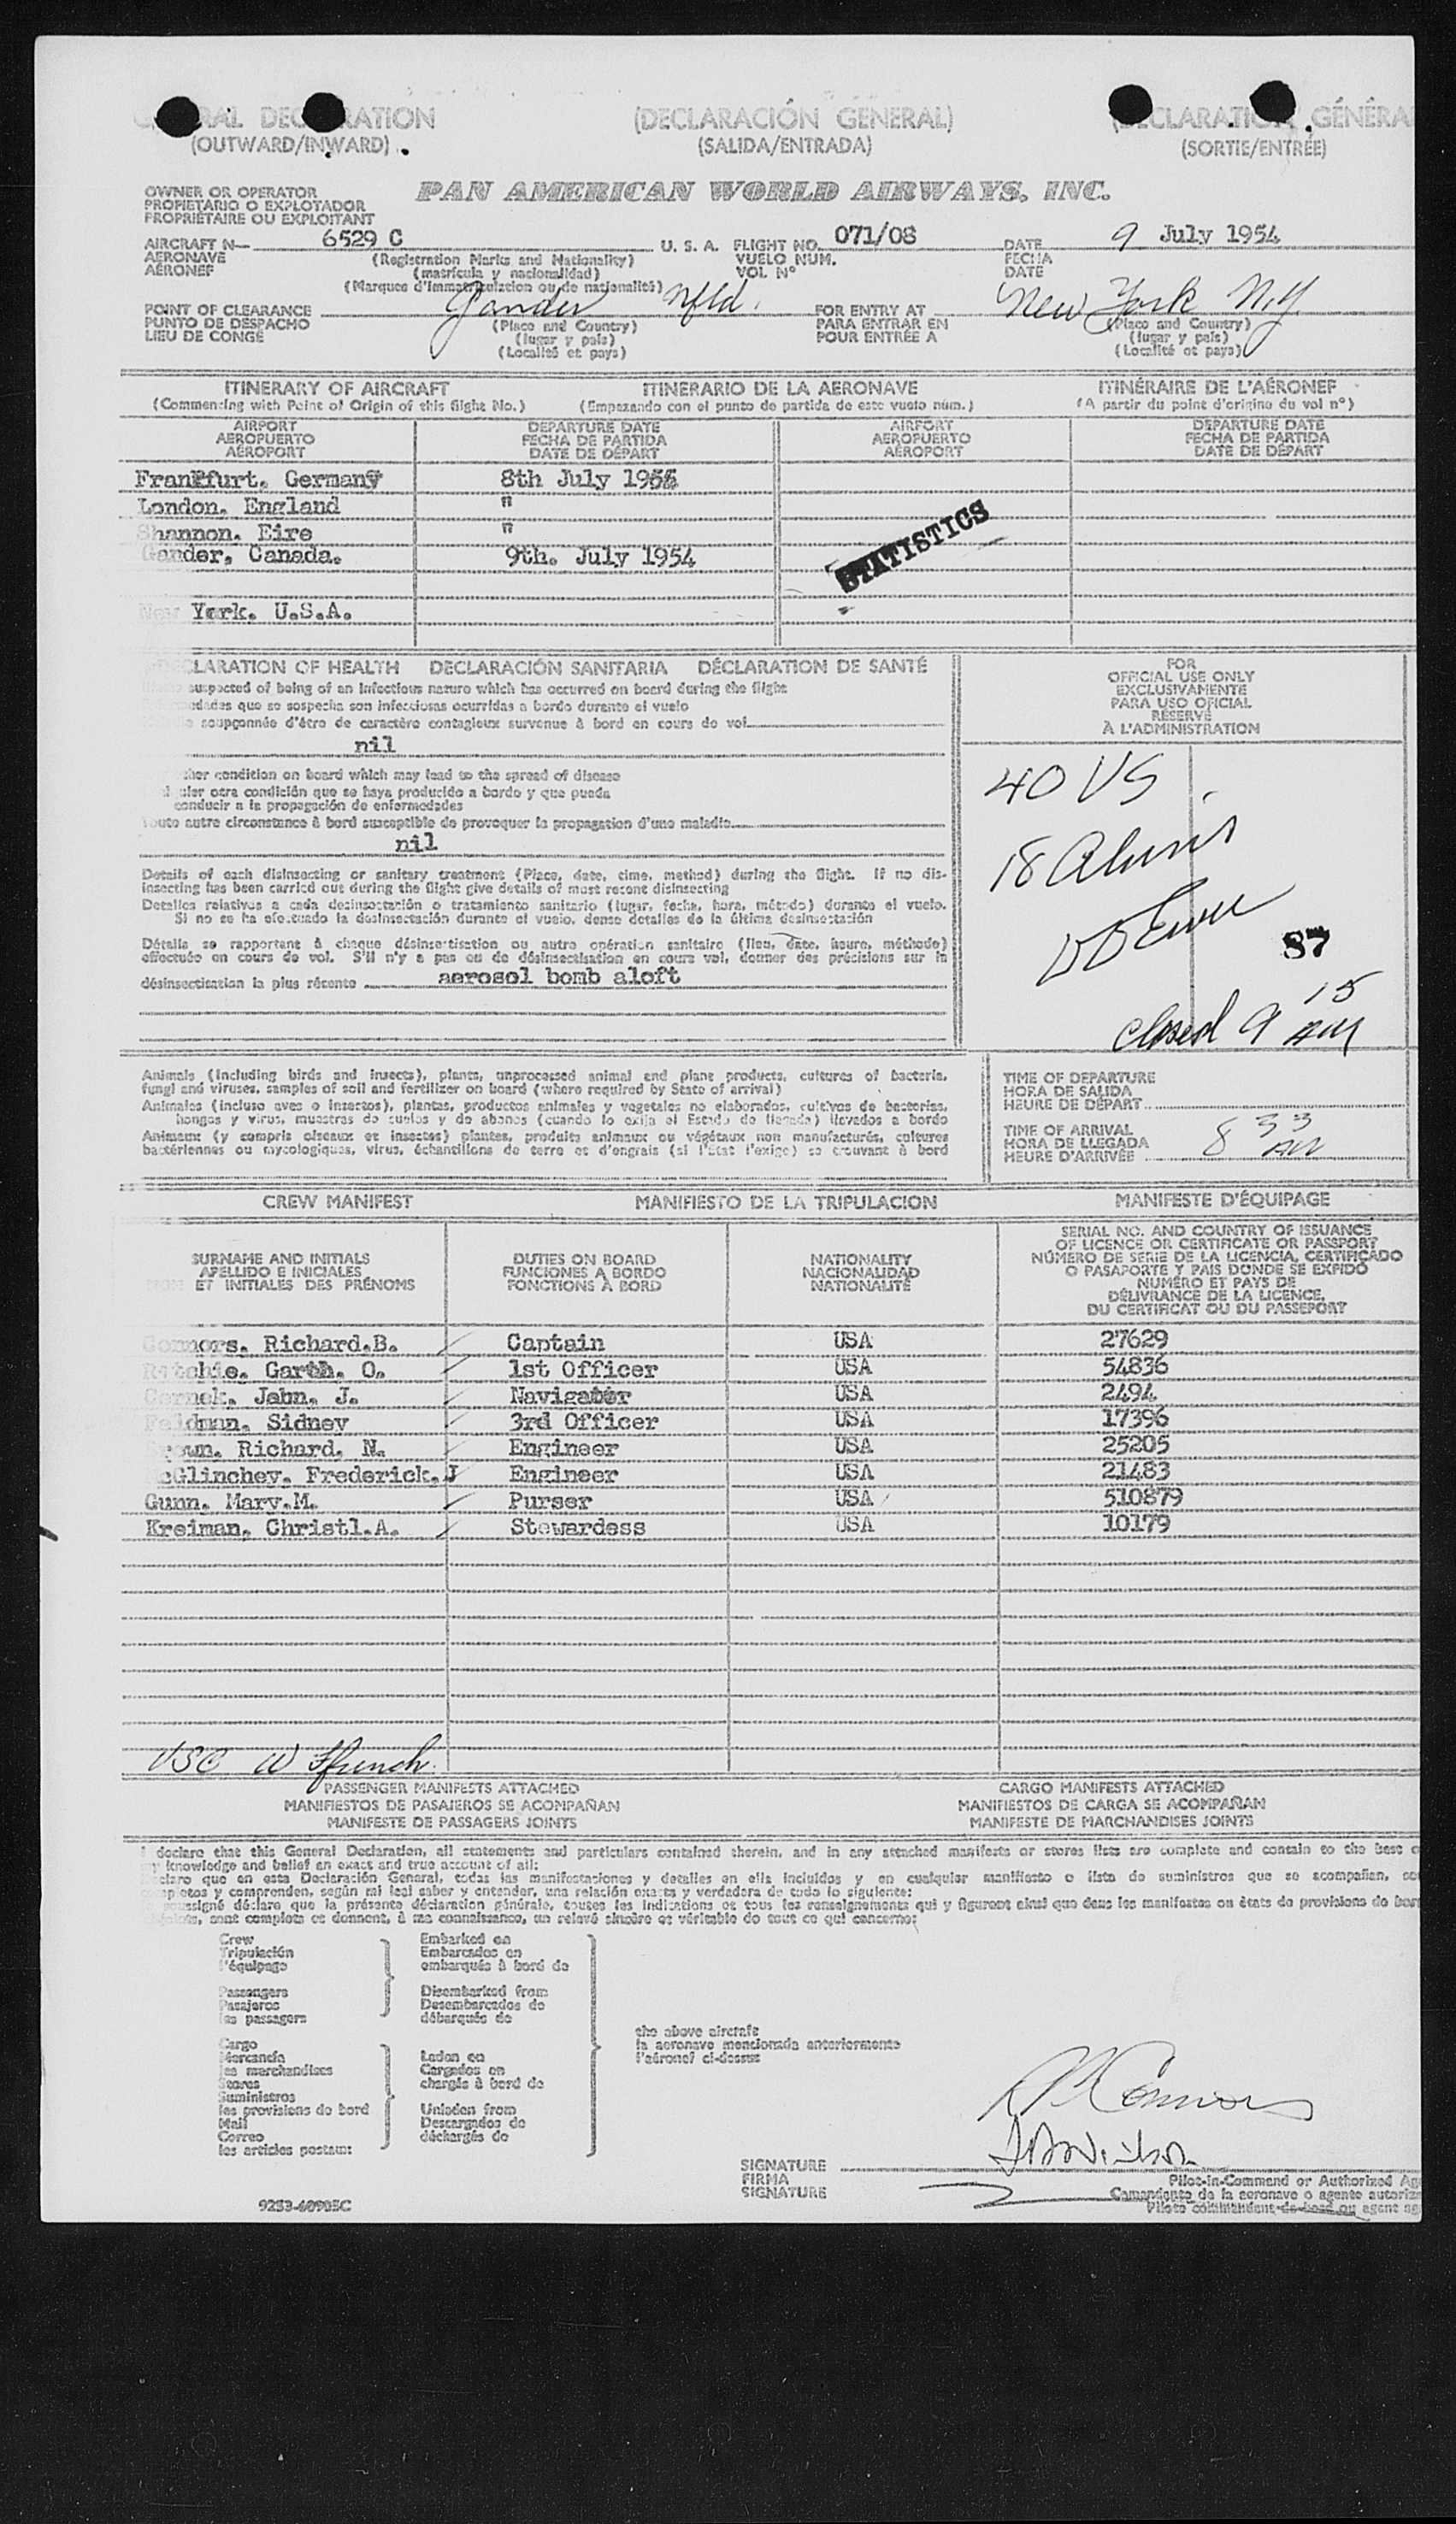 GENERAL DECLARATION (DECLARACIÓN GENERAL) (DECLARATION GÉNÉRA
(OUTWARD/INWARD) (SALIDA/ENTRADA) (SORTIE/ENTRÉE)
OWNER OR OPERATOR
PROPIETARIO O EXPLOTADOR
PROPRIÉTAIRE OU EXPLOITANT
PAN AMERICAN WORLD AIRWAYS, INC.
AIRCRAFT N— 6529 C U. S. A. FLIGHT NO. 071/08 DATE 9 July 1954
AERONAVE (Registration Marks and Nationality) VUELO NUM. FECHA
AÉRONEF (matrícula y nacionalidad) VOL Nº DATE
(Marques d'immatriculation ou de nationalité)
POINT OF CLEARANCE Gander Nfld. FOR ENTRY AT New York N.Y.
PUNTO DE DESPACHO (Place and Country) PARA ENTRAR EN (Place and Country)
LIEU DE CONGÉ (lugar y país) POUR ENTRÉE A (lugar y país)
(Localité et pays) (Localité et pays)
ITINERARY OF AIRCRAFT ITINERARIO DE LA AERONAVE ITINÉRAIRE DE L'AÉRONEF
(Commencing with Point of Origin of this flight No.) (Empezando con el punto de partida de este vuelo núm.) (A partir du point d'origine du vol nº)
AIRPORT DEPARTURE DATE AIRPORT DEPARTURE DATE
AEROPUERTO FECHA DE PARTIDA AEROPUERTO FECHA DE PARTIDA
AÉROPORT DATE DE DÉPART AÉROPORT DATE DE DÉPART
Frankfurt. Germany 8th July 1954
London. England "
Shannon. Eire "
Gander, Canada. 9th. July 1954
STATISTICS
New York. U.S.A.
DECLARATION OF HEALTH DECLARACIÓN SANITARIA DÉCLARATION DE SANTÉ
suspected of being of an infectious nature which has occurred on board during the flight
que se sospecha son infecciosas ocurridas a bordo durante el vuelo
soupçonnée d'être de caractère contagieux survenue à bord en cours de vol
nil
condition on board which may lead to the spread of disease
otra condición que se haya producido a bordo y que pueda
conducir a la propagación de enfermedades
Toute autre circonstance à bord susceptible de provoquer la propagation d'une maladie
nil
Details of each disinsecting or sanitary treatment (Place, date, time, method) during the flight. If no dis-
insecting has been carried out during the flight give details of most recent disinsecting
Detalles relativos a cada desinsectación o tratamiento sanitario (lugar, fecha, hora, método) durante el vuelo.
Si no se ha efectuado la desinsectación durante el vuelo, dense detalles de la última desinsectación
Détails se rapportant à chaque désinsectisation ou autre opération sanitaire (lieu, date, heure, méthode)
effectuée en cours de vol. S'il n'y a pas eu de désinsectisation en cours vol, donner des précisions sur la
désinsectisation la plus récente aerosol bomb aloft
FOR
OFFICIAL USE ONLY
EXCLUSIVAMENTE
PARA USO OFICIAL
RÉSERVÉ
À L'ADMINISTRATION
40 US
18 Aliens
87
Closed 9 15 AM
Animals (including birds and insects), plants, unprocessed animal and plant products, cultures of bacteria,
fungi and viruses, samples of soil and fertilizer on board (where required by State of arrival)
Animales (incluso aves o insectos), plantas, productos animales y vegetales no elaborados, cultivos de bacterias,
hongos y virus, muestras de suelos y de abonos (cuando lo exija el Estado de llegada) llevados a bordo
Animaux (y compris oiseaux et insectes) plantes, produits animaux ou végétaux non manufacturés, cultures
bactériennes ou mycologiques, virus, échantillons de terre et d'engrais (si l'État l'exige) se trouvant à bord
TIME OF DEPARTURE
HORA DE SALIDA
HEURE DE DÉPART
TIME OF ARRIVAL
HORA DE LLEGADA 8 33 AM
HEURE D'ARRIVÉE
CREW MANIFEST MANIFIESTO DE LA TRIPULACION MANIFESTE D'ÉQUIPAGE
SURNAME AND INITIALS DUTIES ON BOARD NATIONALITY
APELLIDO E INICIALES FUNCIONES A BORDO NACIONALIDAD
ET INITIALES DES PRÉNOMS FONCTIONS À BORD NATIONALITÉ
SERIAL NO. AND COUNTRY OF ISSUANCE
OF LICENCE OR CERTIFICATE OR PASSPORT
NÚMERO DE SERIE DE LA LICENCIA, CERTIFICADO
O PASAPORTE Y PAIS DONDE SE EXPIDÓ
NUMÉRO ET PAYS DE
DÉLIVRANCE DE LA LICENCE,
DU CERTIFICAT OU DU PASSEPORT
Connors. Richard.B. Captain USA 27629
Ritchie. Garth. O. 1st Officer USA 54836
Cernek. John. J. Navigator USA 2494
Feldman. Sidney 3rd Officer USA 17396
Brown. Richard. N. Engineer USA 25205
McGlinchey. Frederick.J Engineer USA 21483
Gunn. Mary.M. Purser USA 510879
Kreiman. Christl.A. Stewardess USA 10179
USC W Ffrench
PASSENGER MANIFESTS ATTACHED CARGO MANIFESTS ATTACHED
MANIFIESTOS DE PASAJEROS SE ACOMPAÑAN MANIFIESTOS DE CARGA SE ACOMPAÑAN
MANIFESTE DE PASSAGERS JOINTS MANIFESTE DE MARCHANDISES JOINTS
I declare that this General Declaration, all statements and particulars contained therein, and in any attached manifests or stores lists are complete and contain to the best
my knowledge and belief an exact and true account of all:
Declaro que en esta Declaración General, todas las manifestaciones y detalles en ella incluidos y en cualquier manifiesto o lista de suministros que se acompañan,
completos y comprenden, según mi leal saber y entender, una relación exacta y verdadera de todo lo siguiente:
déclare que la présente déclaration générale, toutes les indications et tous les renseignements qui y figurent ainsi que dans les manifestes ou états de provisions de
sont complets et donnent, à ma connaissance, un relevé sincère et véritable de tout ce qui concerne:
Crew Embarked on
Tripulación Embarcados en
l'équipage embarqués à bord de
Passengers Disembarked from
Pasajeros Desembarcados de
les passagers débarqués de
the above aircraft
la aeronave mencionada anteriormente
l'aéronef ci-dessus
Cargo
Mercancía Laden on
les marchandises Cargados en
Stores chargés à bord de
Suministros
les provisions de bord Unladen from
Mail Descargados de
Correo déchargés de
les articles postaux
R B Connors
SIGNATURE
FIRMA
SIGNATURE
Pilot-in-Command or Authorized Ag
Comandante de la aeronave o agente autoriz
Pilote commandant de bord ou agent ag
9253-60905C